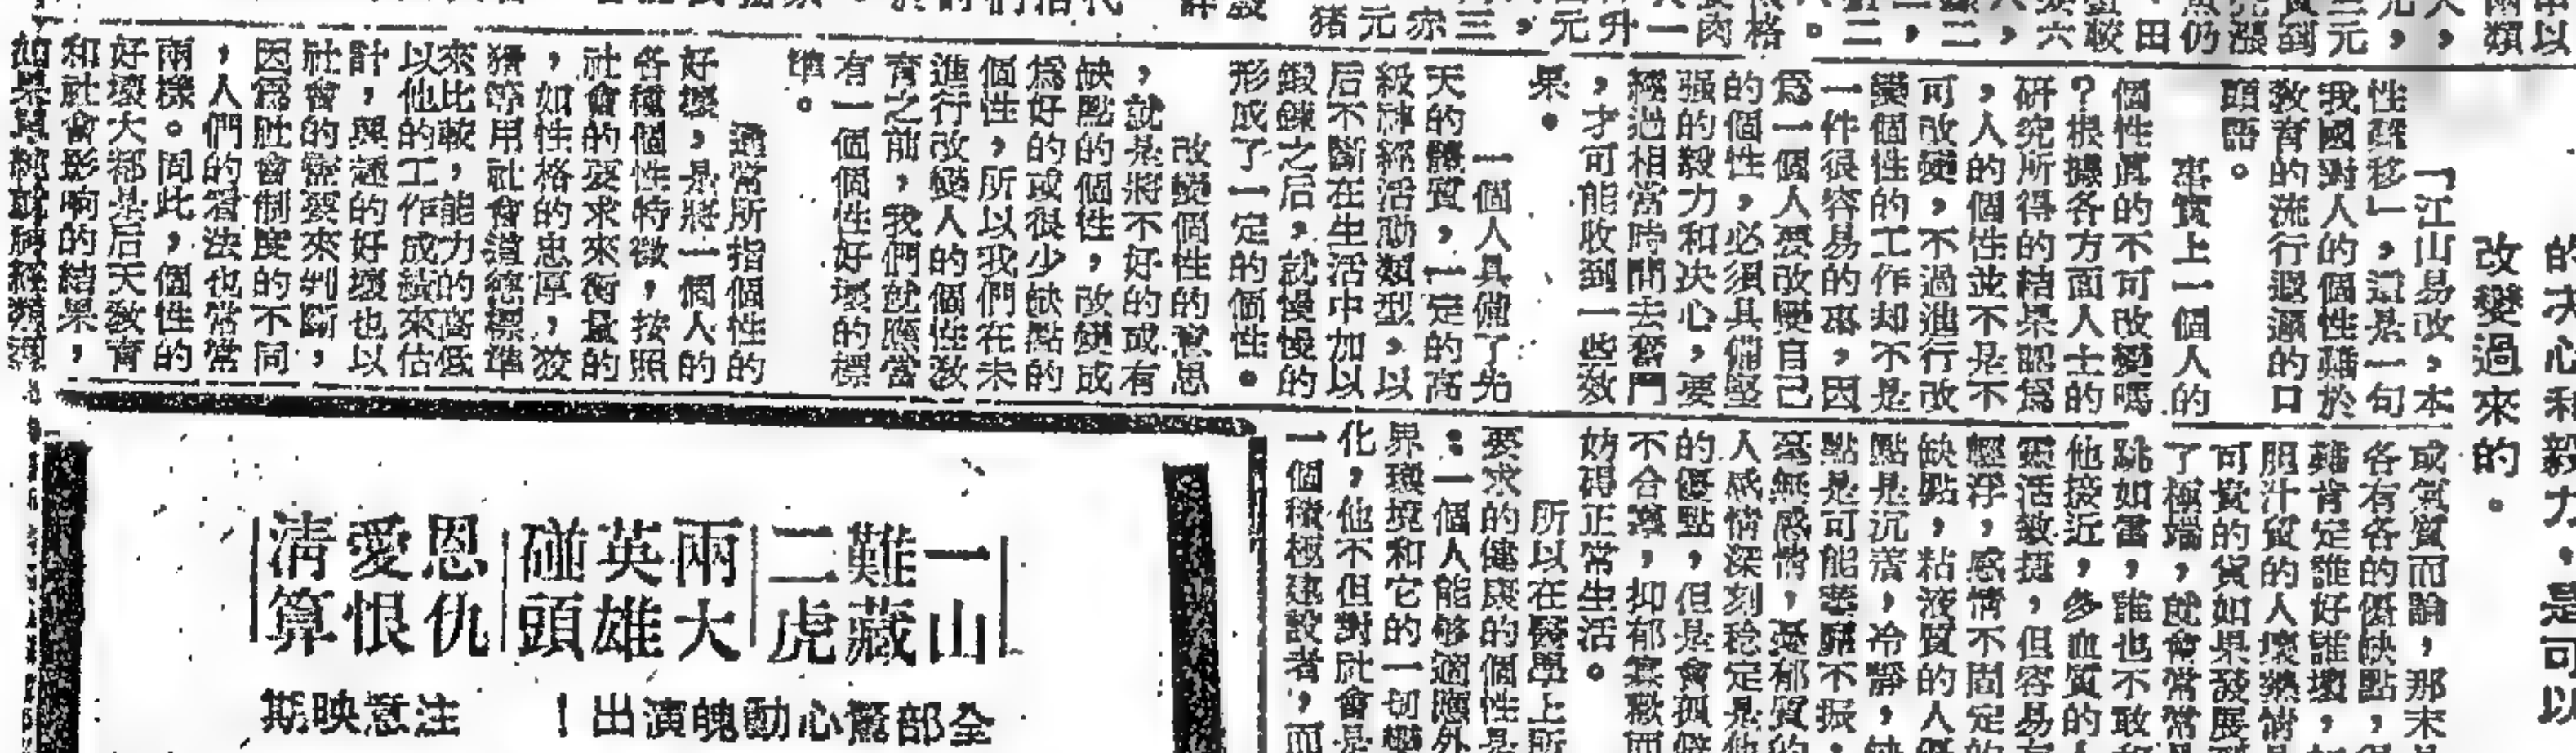 的決心和毅力，是可以
改變過來的。
「江山易改，本
性難移」，這是一句
我國對人的個性難於
教育的流行遐邇的口
頭語。
事實上一個人的
個性真的不可改變嗎
？根據各方面人士的
研究所得的結果認爲
，人的個性並不是不
可改變，不過進行改
變個性的工作却不是
一件很容易的事，因
爲一個人要改變自己
的個性，必須具備堅
强的毅力和决心，要
經過相當時間去奮鬥
，才可能收到一些效
果。
一個人具備了先
天的體質，一定的高
級神經活動類型，以
后不斷在生活中加以
鍛鍊之后，就慢慢的
形成了一定的個性。
改變個性的意思
，就是將不好的或有
缺點的個性，改變成
爲好的或很少缺點的
個性，所以我們在未
進行改變人的個性教
育之前，我們就應當
有一個個性好壞的標
準。
通常所指個性的
好壞，是將一個人的
各種個性特徵，按照
社會的要求來衡量的
，如性格的忠厚，狡
猾等用社會道德標準
來比較，能力的高低
以他的工作成績來估
計，興趣的好壞也以
社會的需要來判斷，
因爲社會制度的不同
，人們的看法也常常
兩樣。因此，個性的
好壞大都是后天教育
和社會影响的結果，
如果單純就神經類型
或氣質而論，那末
各有各的優缺點，
難肯定誰好誰壞，
胆汁質的人壞熱情
可貴的質如果發展
了極端，就會常常
跳如雷，誰也不敢和
他接近，多血質的人
靈活敏捷，但容易有
輕浮，感情不固定的
缺點，粘液質的人優
點是沉着，冷靜，缺
點是可能萎靡不振，
毫無感情，憂郁質的
人感情深刻稳定是他
的優點，但是會孤僻
不合羣，抑郁寡歡而
妨碍正常生活。
所以在醫學上所
要求的健康的個性是
：一個人能够適應外
界環境和它的一切變
化，他不但對社會是
一個積極建設者，而
一山
難藏
二虎
兩大
英雄
碰頭
恩仇
愛恨
清算
全部驚心動魄演出！
注意映期